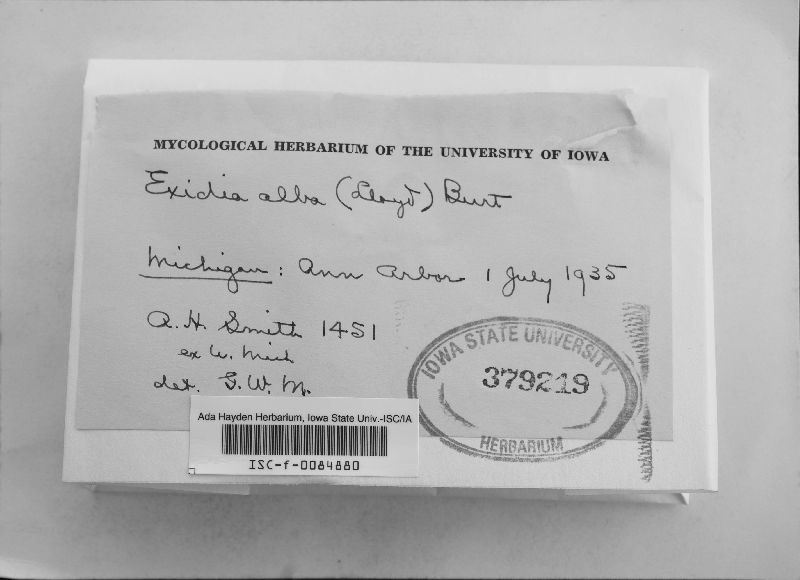 MYCOLOGICAL HERBARIUM OF THE UNIVERSITY OF IOWA
Exidia alba (Lloyd) Burt
Michigan: Ann Arbor 1 July 1935
A. H. Smith 1451
ex U. Mich
det. G. W. M.
IOWA STATE UNIVERSITY
379219
HERBARIUM
Ada Hayden Herbarium, Iowa State Univ.-ISC/IA
ISC-f-0084880